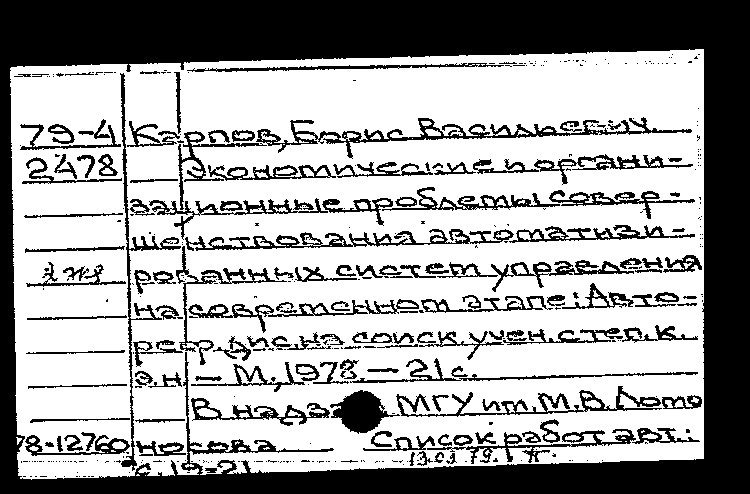 79-4 Карпов, Борис Васильевич.
2478 Экономические и органи-
зационные проблемы совер-
шенствования автоматизи-
рованных систем управления
на современном этапе: Авто-
реф. дис. на соиск. учен. степ. к.
э.н. — М., 1978. — 21 с.
В надзаг. МГУ им. М.В. Ломо
78-12760 носова. Список работ авт.:
с. 19-21
19.03.79.